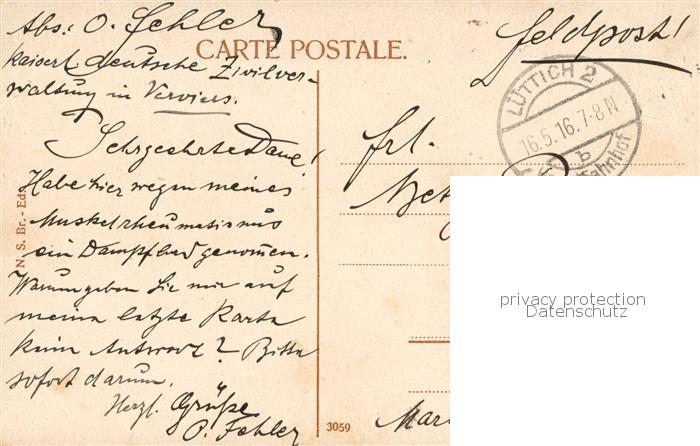 Abs: O. Fehler
kaiserl. deutsche Zivilver-
waltung in Verviers.
CARTE POSTALE.
Feldpost!
LÜTTICH 2
16.5.16.7-8 N
b
Bahnhof
Sehrgeehrte Dame!
Habe hier wegen meines
Muskelrheumatismus
ein Dampfbad genommen.
Warum geben Sie mir auf
meine letzte Karte
keine Antwort? Bitte
sofort darum.
Herzl. Grüße
O. Fehler
N. S. Br. - Eds.
3059
Frl.
privacy protection
Datenschutz